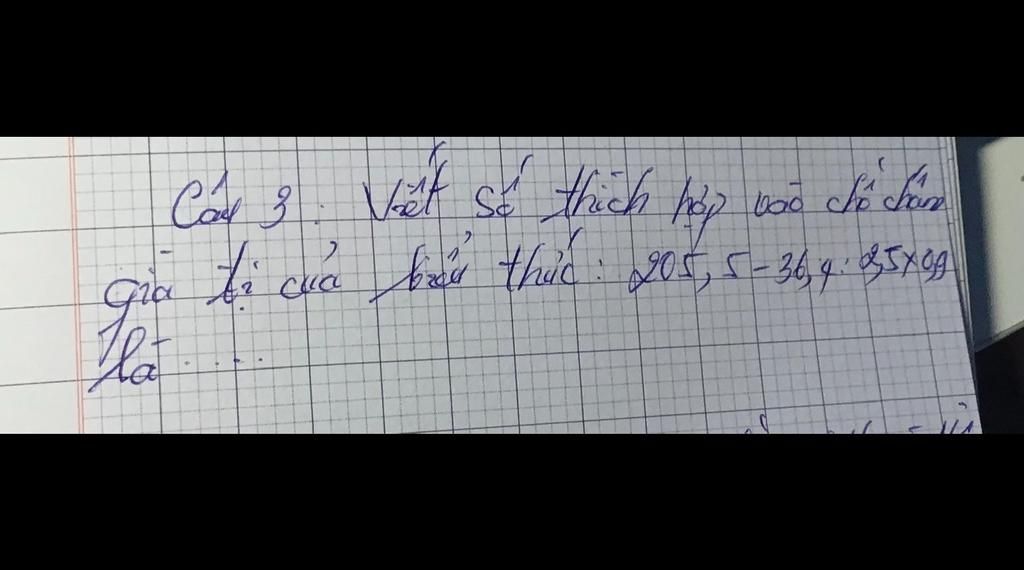 Câu 3: Viết số thích hợp vào chỗ chấm
giá trị của biểu thức: 205,5-36,4:3,5x99
là .....